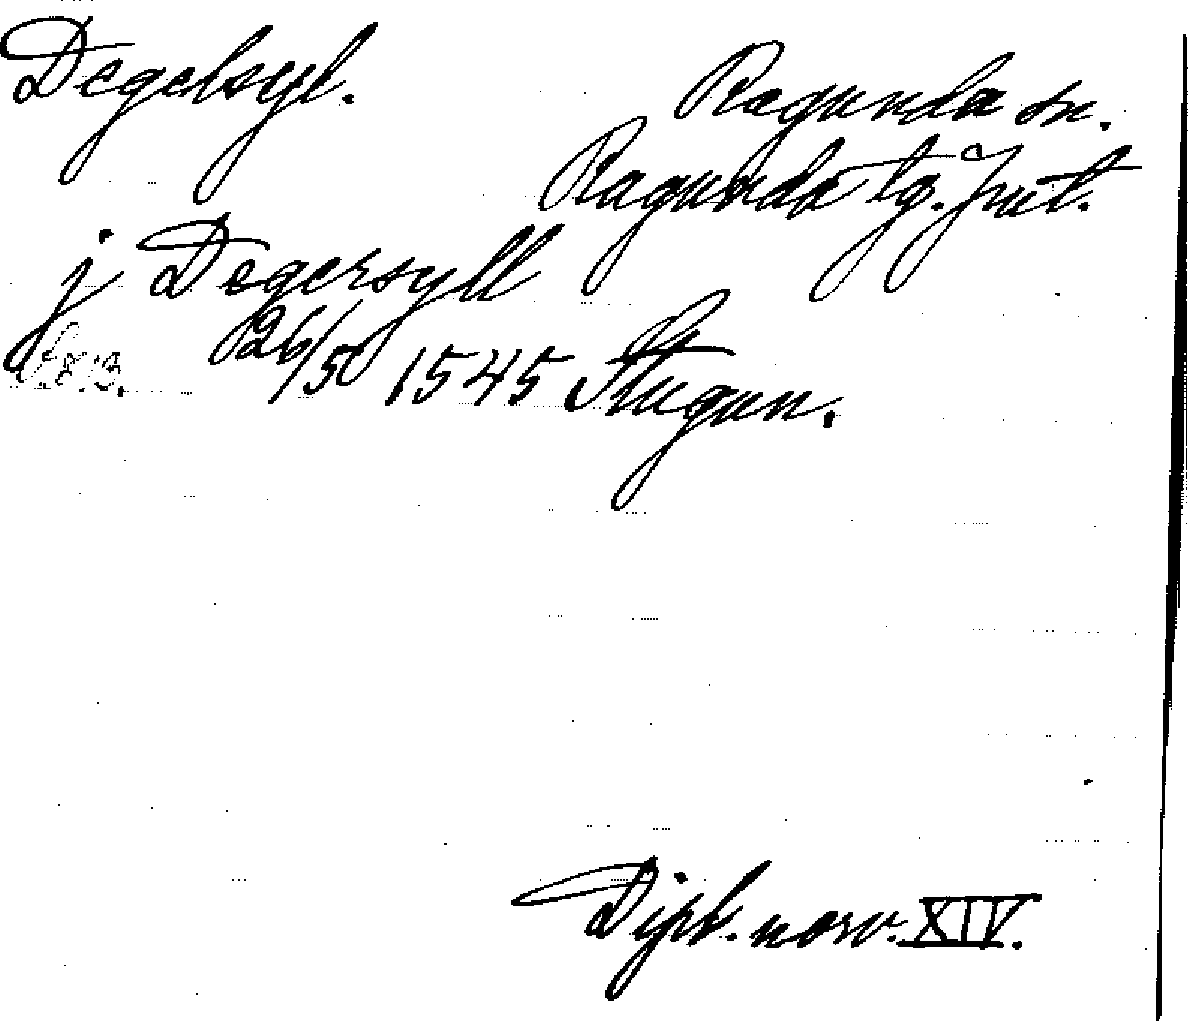 Degelsyl.
Ragunda sn.
Ragunda tg. Jmt.
j Degersyll
26/5 1545 Stugun.
Dipl. norv. XIV.